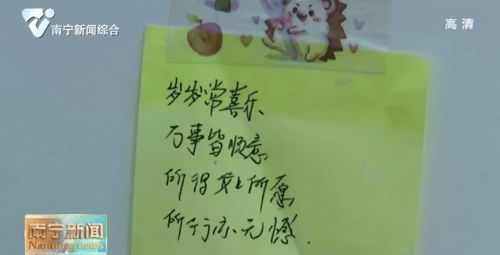 南宁新闻综合
高清
岁岁常喜乐
万事皆顺意
所得皆所愿
所行亦无憾.
南宁新闻
Nanning news